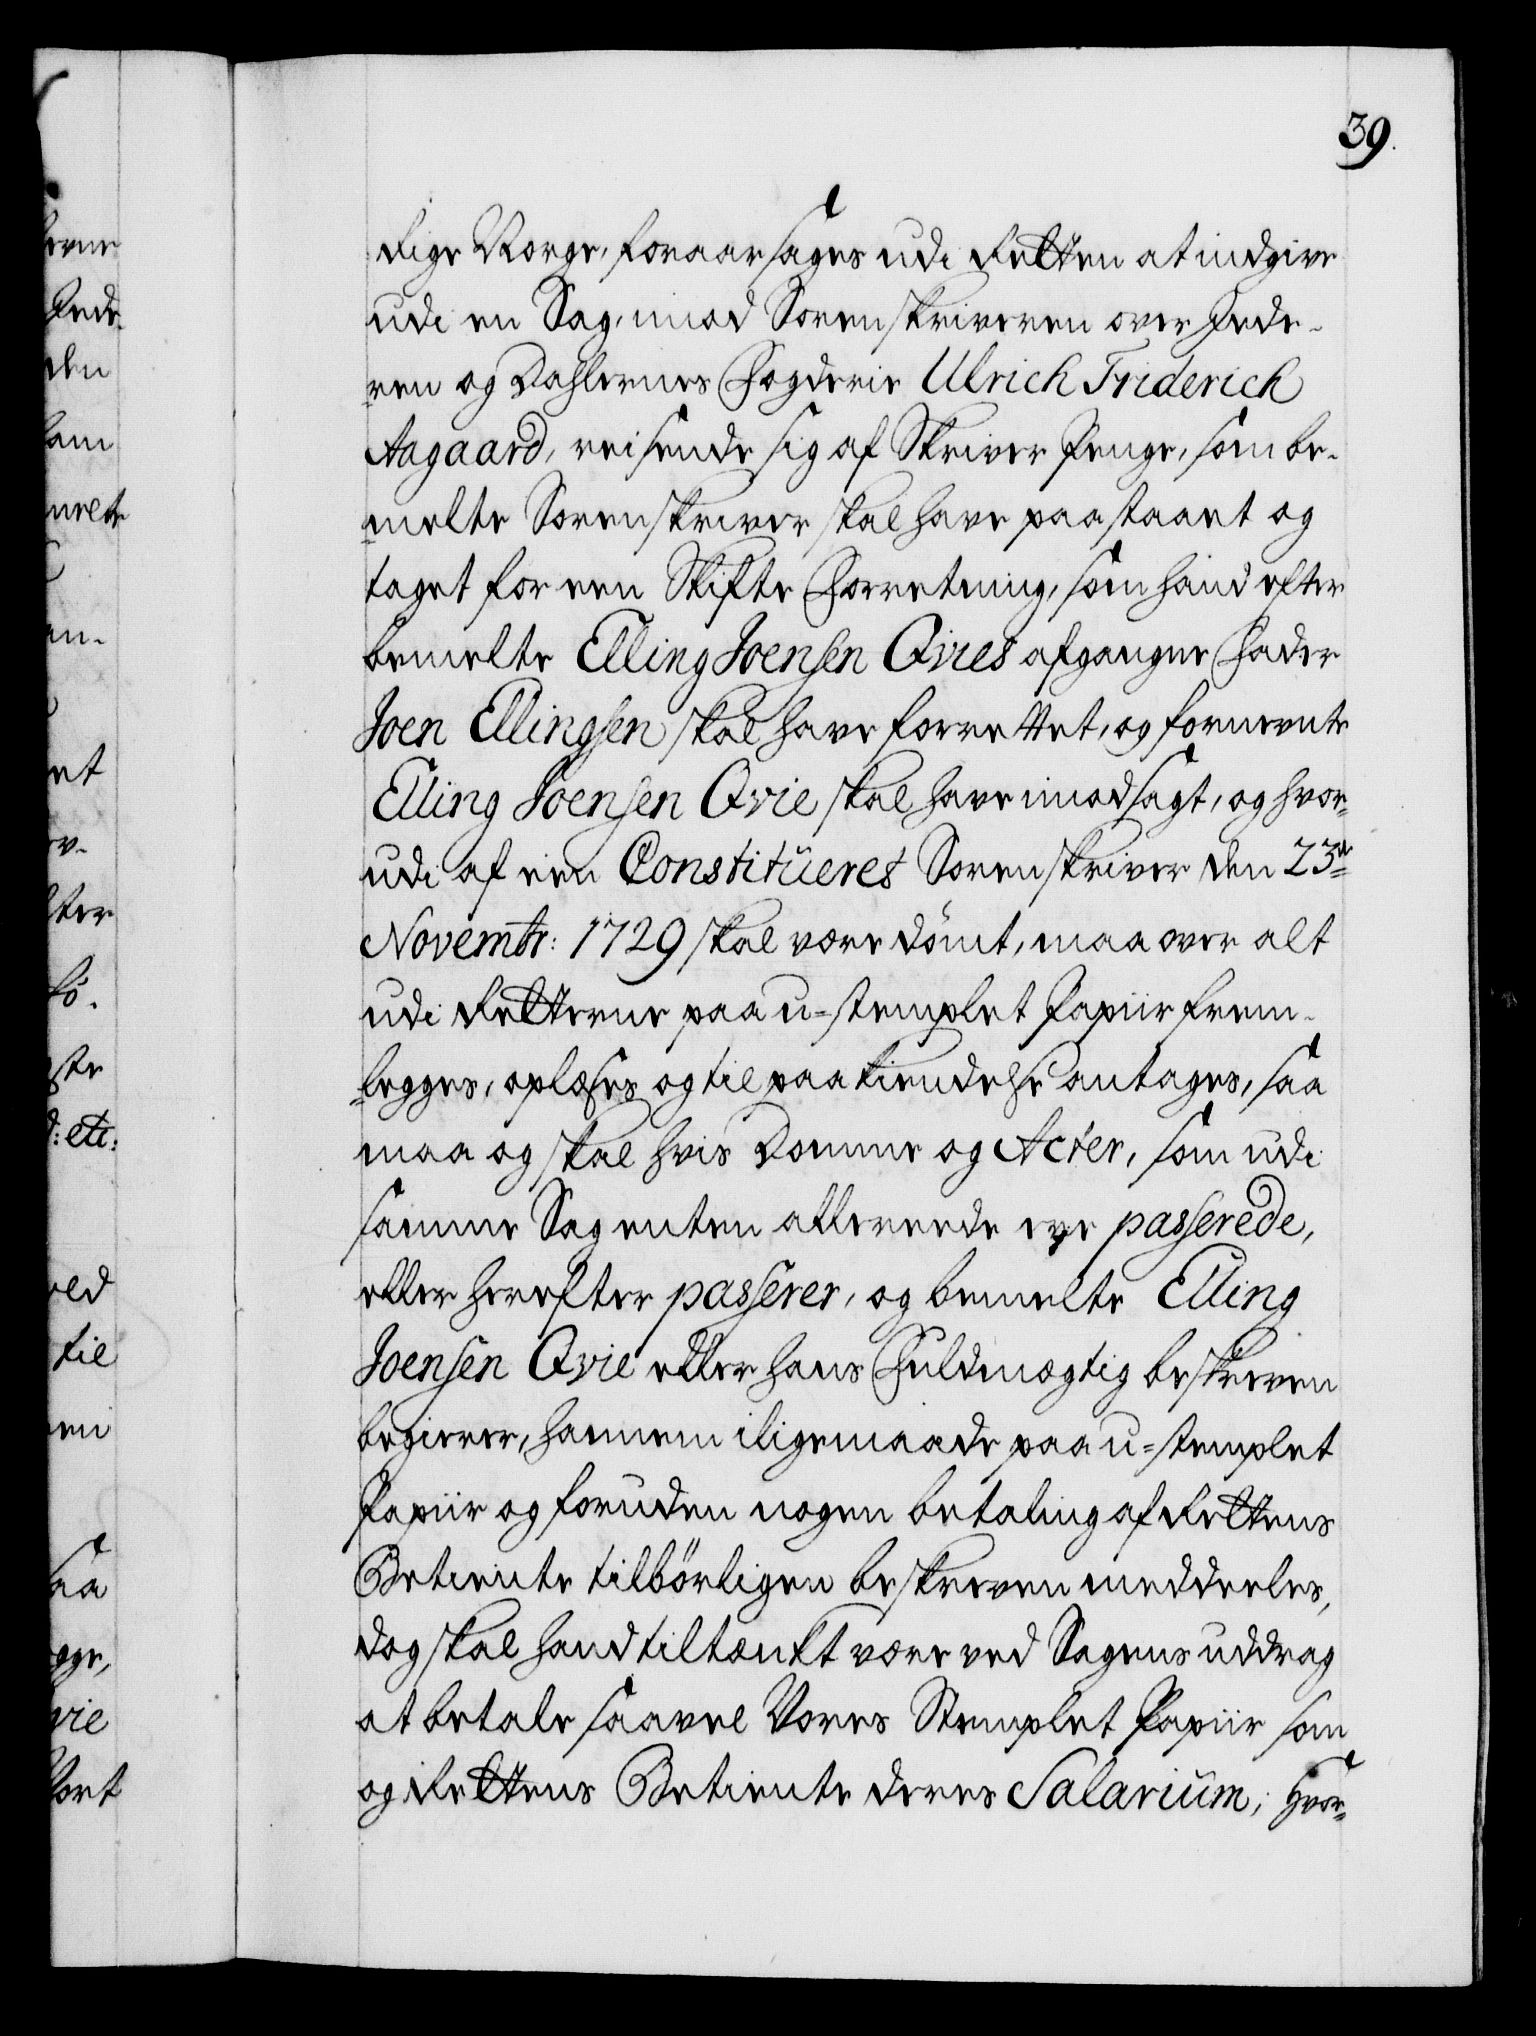 39.
Rige Norge, foraarsages udi Retten at indgive
udi en Sag, imod Sorenskriveren over Jede-
ren og Dahlernes Fogderie Ulrich Friderich
Aagaard, reisende sig af Skriver Penge, som be-
melte Sorenskriver skal have paastaaet og
taget for een Skifte Forretning, som hand efter
bemelte Elling Joensen Qvies afgangne Fader
Joen Ellingsen skal have forrettet, og fornevnte
Elling Joensen Qvie skal have imodsagt, og hvor-
udi af een Constitueret Sorenskriver den 23de
Novembr: 1729 skal være dömt, maa over alt
udi Retterne paa u-stemplet Papiir frem-
legges, oplæses og til paakiendelse antages, saa
maa og skal hvis Domme og Acter, som udi
samme Sag enten allereede ere passerede,
eller herefter passerer, og bemelte Elling
Joensen Qvie eller hans Fuldmægtig beskreven
begierer, hannem iligemaade paa u-stemplet
Papiir og foruden nogen betaling af Rettens
Betiente tilbörligen beskreven meddeeles,
dog skal hand tiltænkt være ved Sagens uddrag
at betale saavel Vores Stemplet Papiir som
og Rettens Betiente deres Salarium; Hvor-